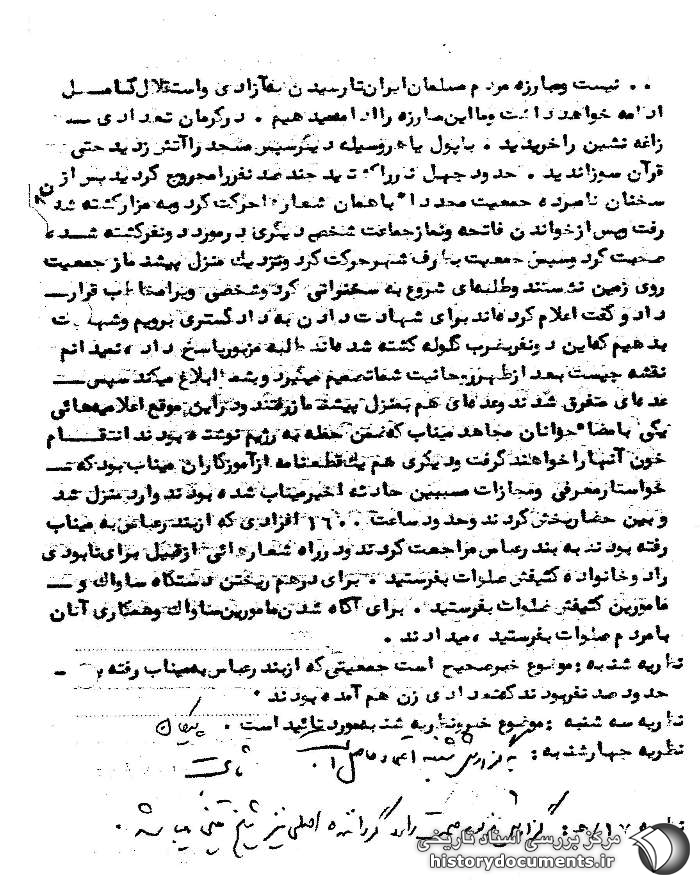 .. نیست و مبارزه مردم مسلمان ایران تا رسیدن به آزادی و استقلال کامل
ادامه خواهد داشت و ما این مبارزه را ادامه میدهیم . در کرمان تعدادی
زاغه نشین را خریدید . با پول یا هر وسیله دیگر سپس مسجد را آتش زدید حتی
قرآن سوزاندید . حدود چهل نفر را کشتید چند صد نفر را مجروح کردید پس از
سخنان نامبرده جمعیت مجددا" با همان شعارها حرکت کرد و به مزار کشته شدگان
رفت و پس از خواندن فاتحه و نماز جماعت شخص دیگری در مورد دو نفر کشته شده
صحبت کرد و سپس جمعیت بطرف شهر حرکت کرد و نزدیک منزل پیشنماز جمعیت
روی زمین نشستند و طلبه ای شروع به سخنرانی کرد و شخصی ویرا مخاطب قرار
داد و گفت اعلام کرده اند برای شهادت دادن به دادگستری برویم و شهادت
بدهیم که این دو نفر بضرب گلوله کشته شده اند طلبه مزبور پاسخ داد ، نمیدانم
نقشه چیست بعد از ظهر روحانیت شما تصمیم میگیرد و بشما ابلاغ میکند سپس
عده ای متفرق شدند و عده ای هم بمنزل پیشنماز رفتند و در این موقع اعلامیه هائی
یکی بامضاء جوانان مجاهد میناب که ضمن حمله به رژیم نوشته بودند انتقام
خون آنها را خواهند گرفت و دیگری هم یک قطعنامه از آموزگاران میناب بود که
خواستار معرفی و مجازات مسببین حادثه اخیر میناب شده بودند وارد منزل شد
و بین حضار پخش کردند و حدود ساعت ۱۶۰۰ افرادی که از بندرعباس به میناب
رفته بودند به بندرعباس مراجعت کردند و در راه شعارهائی از قبیل برای نابودی
راد و خانواده کثیفش صلوات بفرستید . برای درهم ریختن دستگاه ساواک و
مامورین کثیفش صلوات بفرستید . برای آگاه شدن مامورین ساواک و همکاری آنان
با مردم صلوات بفرستید ، میدادند .
نظریه شنبه : موضوع خبر صحیح است جمعیتی که از بندرعباس به میناب رفته
حدود صد نفر بودند که تعدادی زن هم آمده بودند .
نظریه سه شنبه : موضوع خبر و نظریه شنبه مورد تائید است . پیکان
نظریه چهارشنبه : به گزارش شنبه اعتماد حاصل است
نظریه : گزارش صحت دارد گرداننده اصلی نیز شیخ میباشد .
مرکز بررسی اسناد تاریخی
historydocuments.ir